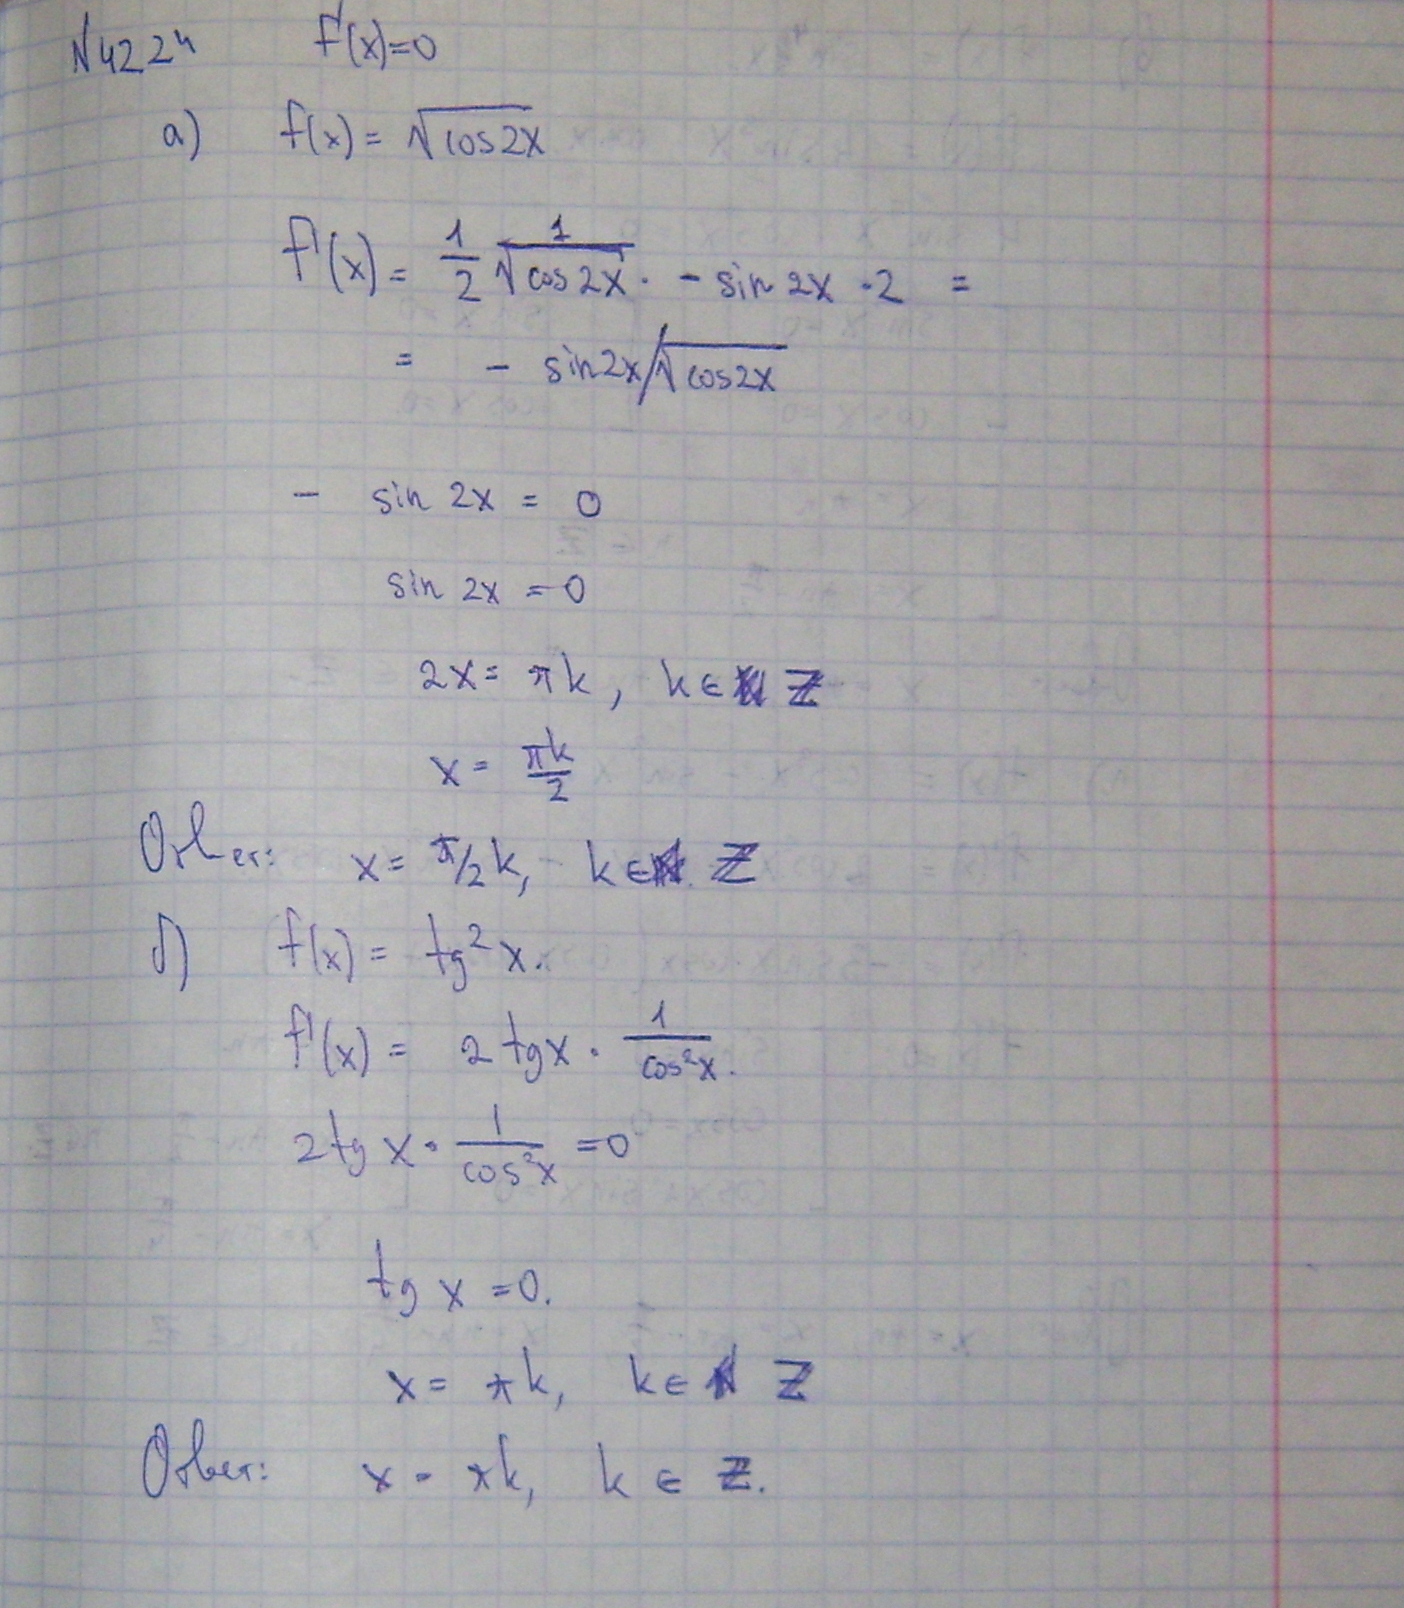 N 422ч f'(x)=0
а) f(x) = √cos2x
f'(x) = 1/2 1/√cos2x · - sin 2x · 2 =
= - sin2x/√cos2x
- sin 2x = 0
sin 2x = 0
2x = πk, k ∈ Z
x = πk/2
Ответ: x = π/2 k, k ∈ Z
б) f(x) = tg² x.
f'(x) = 2 tgx · 1/cos²x.
2tg x · 1/cos²x = 0
tg x = 0.
x = πk, k ∈ Z
Ответ: x = πk, k ∈ Z.